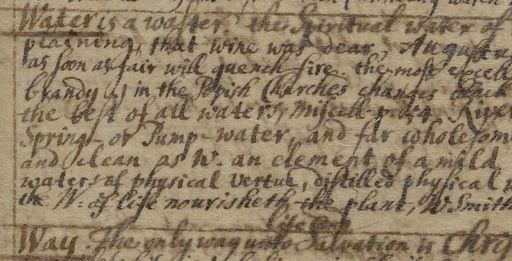 Water is a waster the Spiritual water of
plaining, that wine was dear, Augustu
as soon as fair will quench fire. the most excell
brandy is in the Popish Churches changed
the best of all waters, Miscell. River
Spring- or Pump-water, and far wholesom
and clean as W. an element of a mild
waters of physical vertue, distilled physical w
the W: of life nourisheth the plant, W Smith
life
Way. The only way unto Salvation is Chris